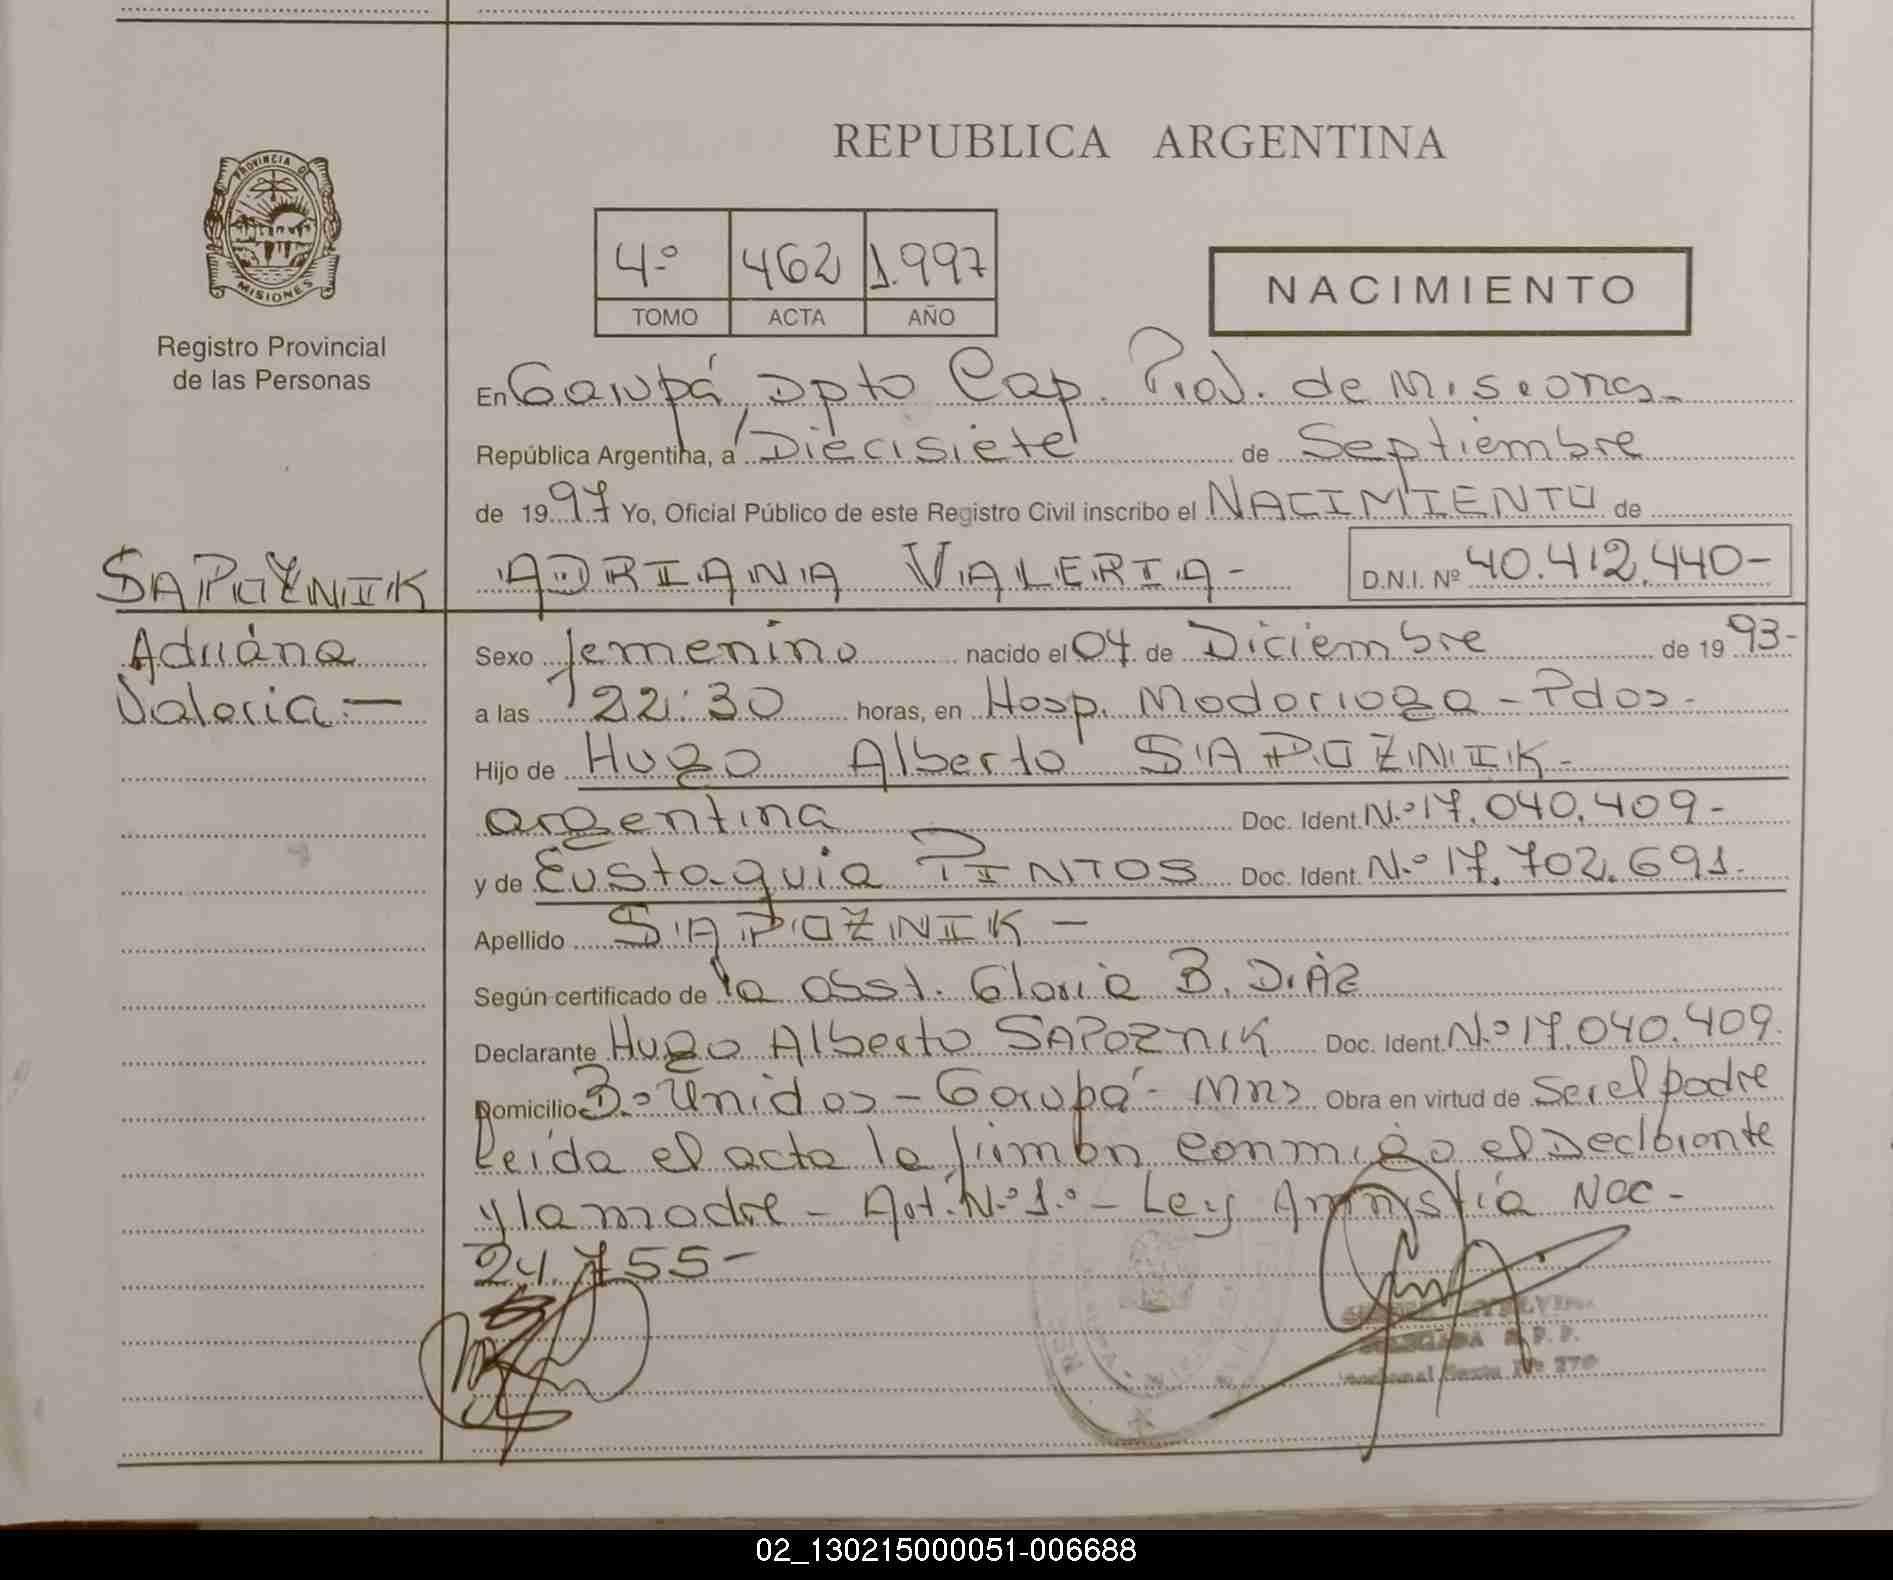 REPUBLICA ARGENTINA
PROVINCIA DE
MISIONES
Registro Provincial
de las Personas
4º 462 1.997
TOMO ACTA AÑO
NACIMIENTO
En Garupá, Dpto Cap. Prov. de Misiones-
República Argentina, a Diecisiete de Septiembre
de 1997 Yo, Oficial Público de este Registro Civil inscribo el NACIMIENTO de
SAPOZNIK
ADRIANA VALERIA- D.N.I. Nº 40.412.440-
Adriána
Valeria.-
Sexo femenino nacido el 04 de Diciembre de 1993-
a las 22:30 horas, en Hosp. Madariaga - Pdas-
Hijo de Hugo Alberto SAPOZNIK-
argentina Doc. Ident. N.º 17.040.409-
y de Eustaquia PINTOS Doc. Ident. N.º 17.702.691.-
Apellido SAPOZNIK-
Según certificado de la Obst. Gloria B. DIAZ
Declarante Hugo Alberto SAPOZNIK Doc. Ident. N.º 17.040.409.
Domicilio B.º Unidos - Garupá - Mnes Obra en virtud de Ser el padre
Leída el acta la firman conmigo el Declarante
y la madre - Art. N.º 1.º - Ley Amnistía Nac-
24.755-
R. P. P.
Nº 270
02_130215000051-006688